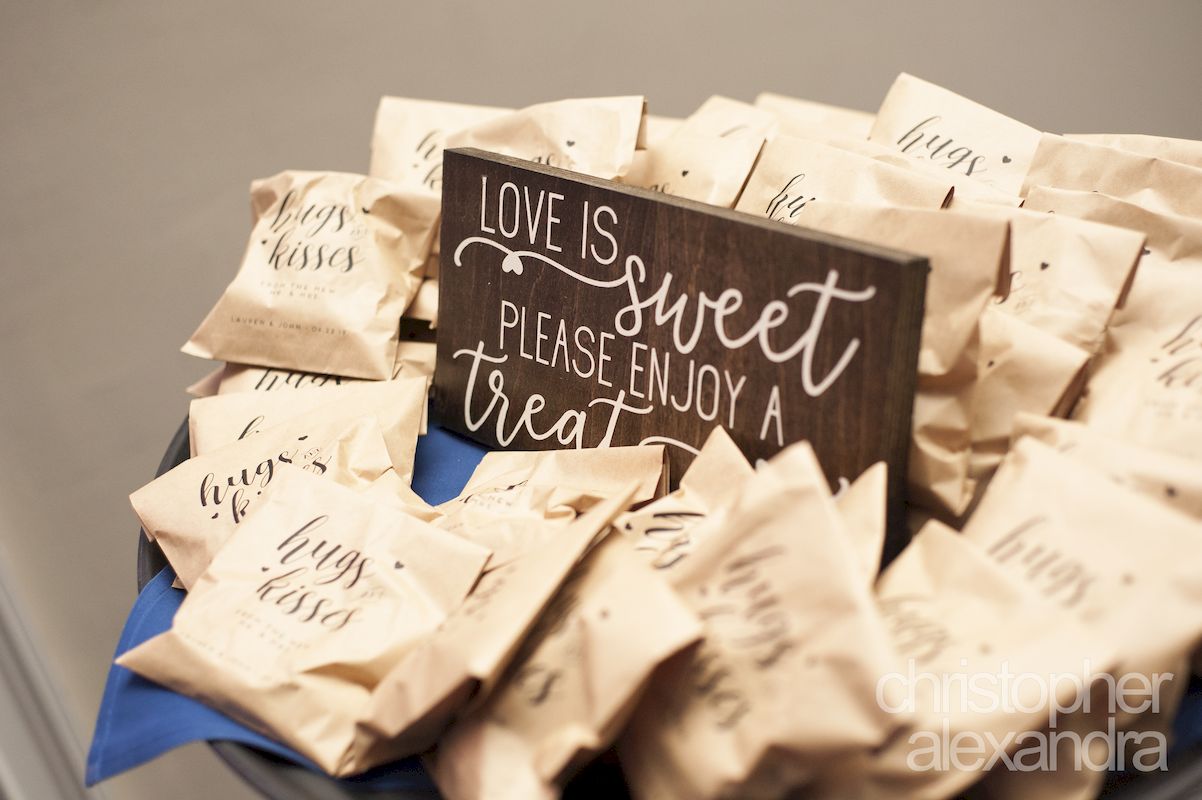 LOVE IS
sweet
PLEASE ENJOY A
treat
hugs and
kisses
FROM THE NEW
MR. & MRS.
LAUREN & JOHN
hugs
hugs
hugs
kisses
hugs and
kisses
FROM THE NEW
MR. & MRS.
hugs
hugs
hugs
christopher
alexandra